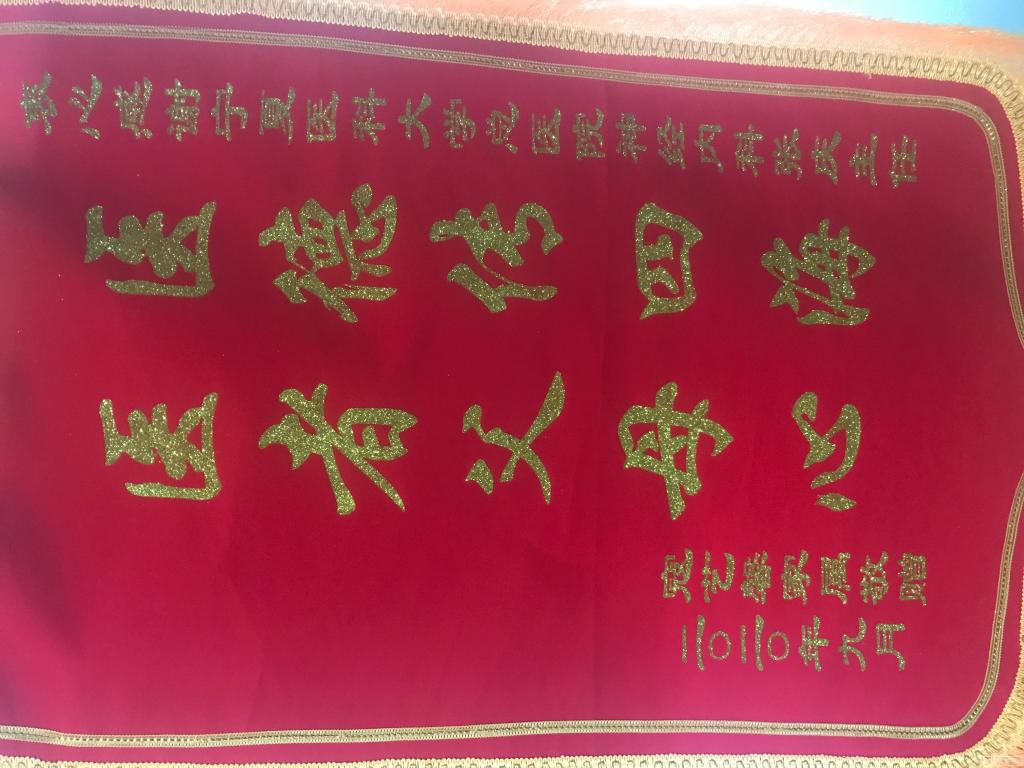 衷心感谢宁夏医科大学总医院神经内科张庆主任
医德传四海
医者父母心
寇艺馨家属敬赠
二〇二〇年九月